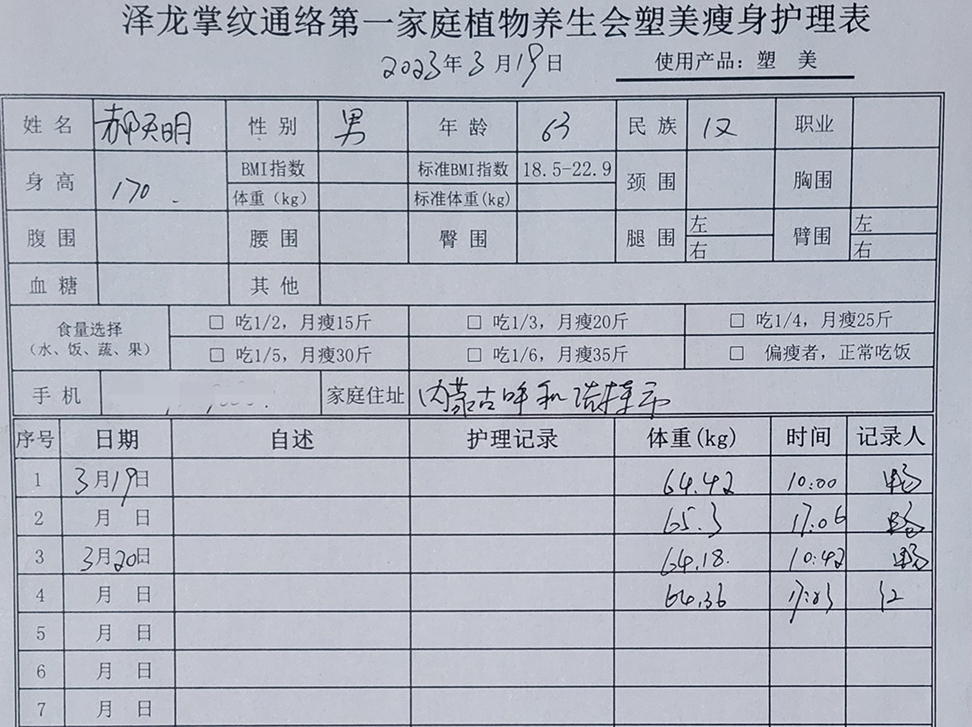 泽龙掌纹通络第一家庭植物养生会塑美瘦身护理表
2023年3月19日 使用产品：塑 美
姓 名 郝天明 性 别 男 年 龄 63 民 族 汉 职业
身 高 170 BMI指数 标准BMI指数 18.5-22.9 颈 围 胸围
体重（kg） 标准体重(kg)
腹 围 腰 围 臀 围 腿 围 左 臂围 左
右 右
血 糖 其 他
食量选择 □ 吃1/2，月瘦15斤 □ 吃1/3，月瘦20斤 □ 吃1/4，月瘦25斤
（水、饭、蔬、果） □ 吃1/5，月瘦30斤 □ 吃1/6，月瘦35斤 □ 偏瘦者，正常吃饭
手 机 家庭住址 内蒙古呼和浩特市
序号 日期 自述 护理记录 体重(kg) 时间 记录人
1 3月19日 64.42 10:00
2 月 日 65.3 17:06
3 3月20日 64.18 10:42
4 月 日 64.36 红
5 月 日
6 月 日
7 月 日